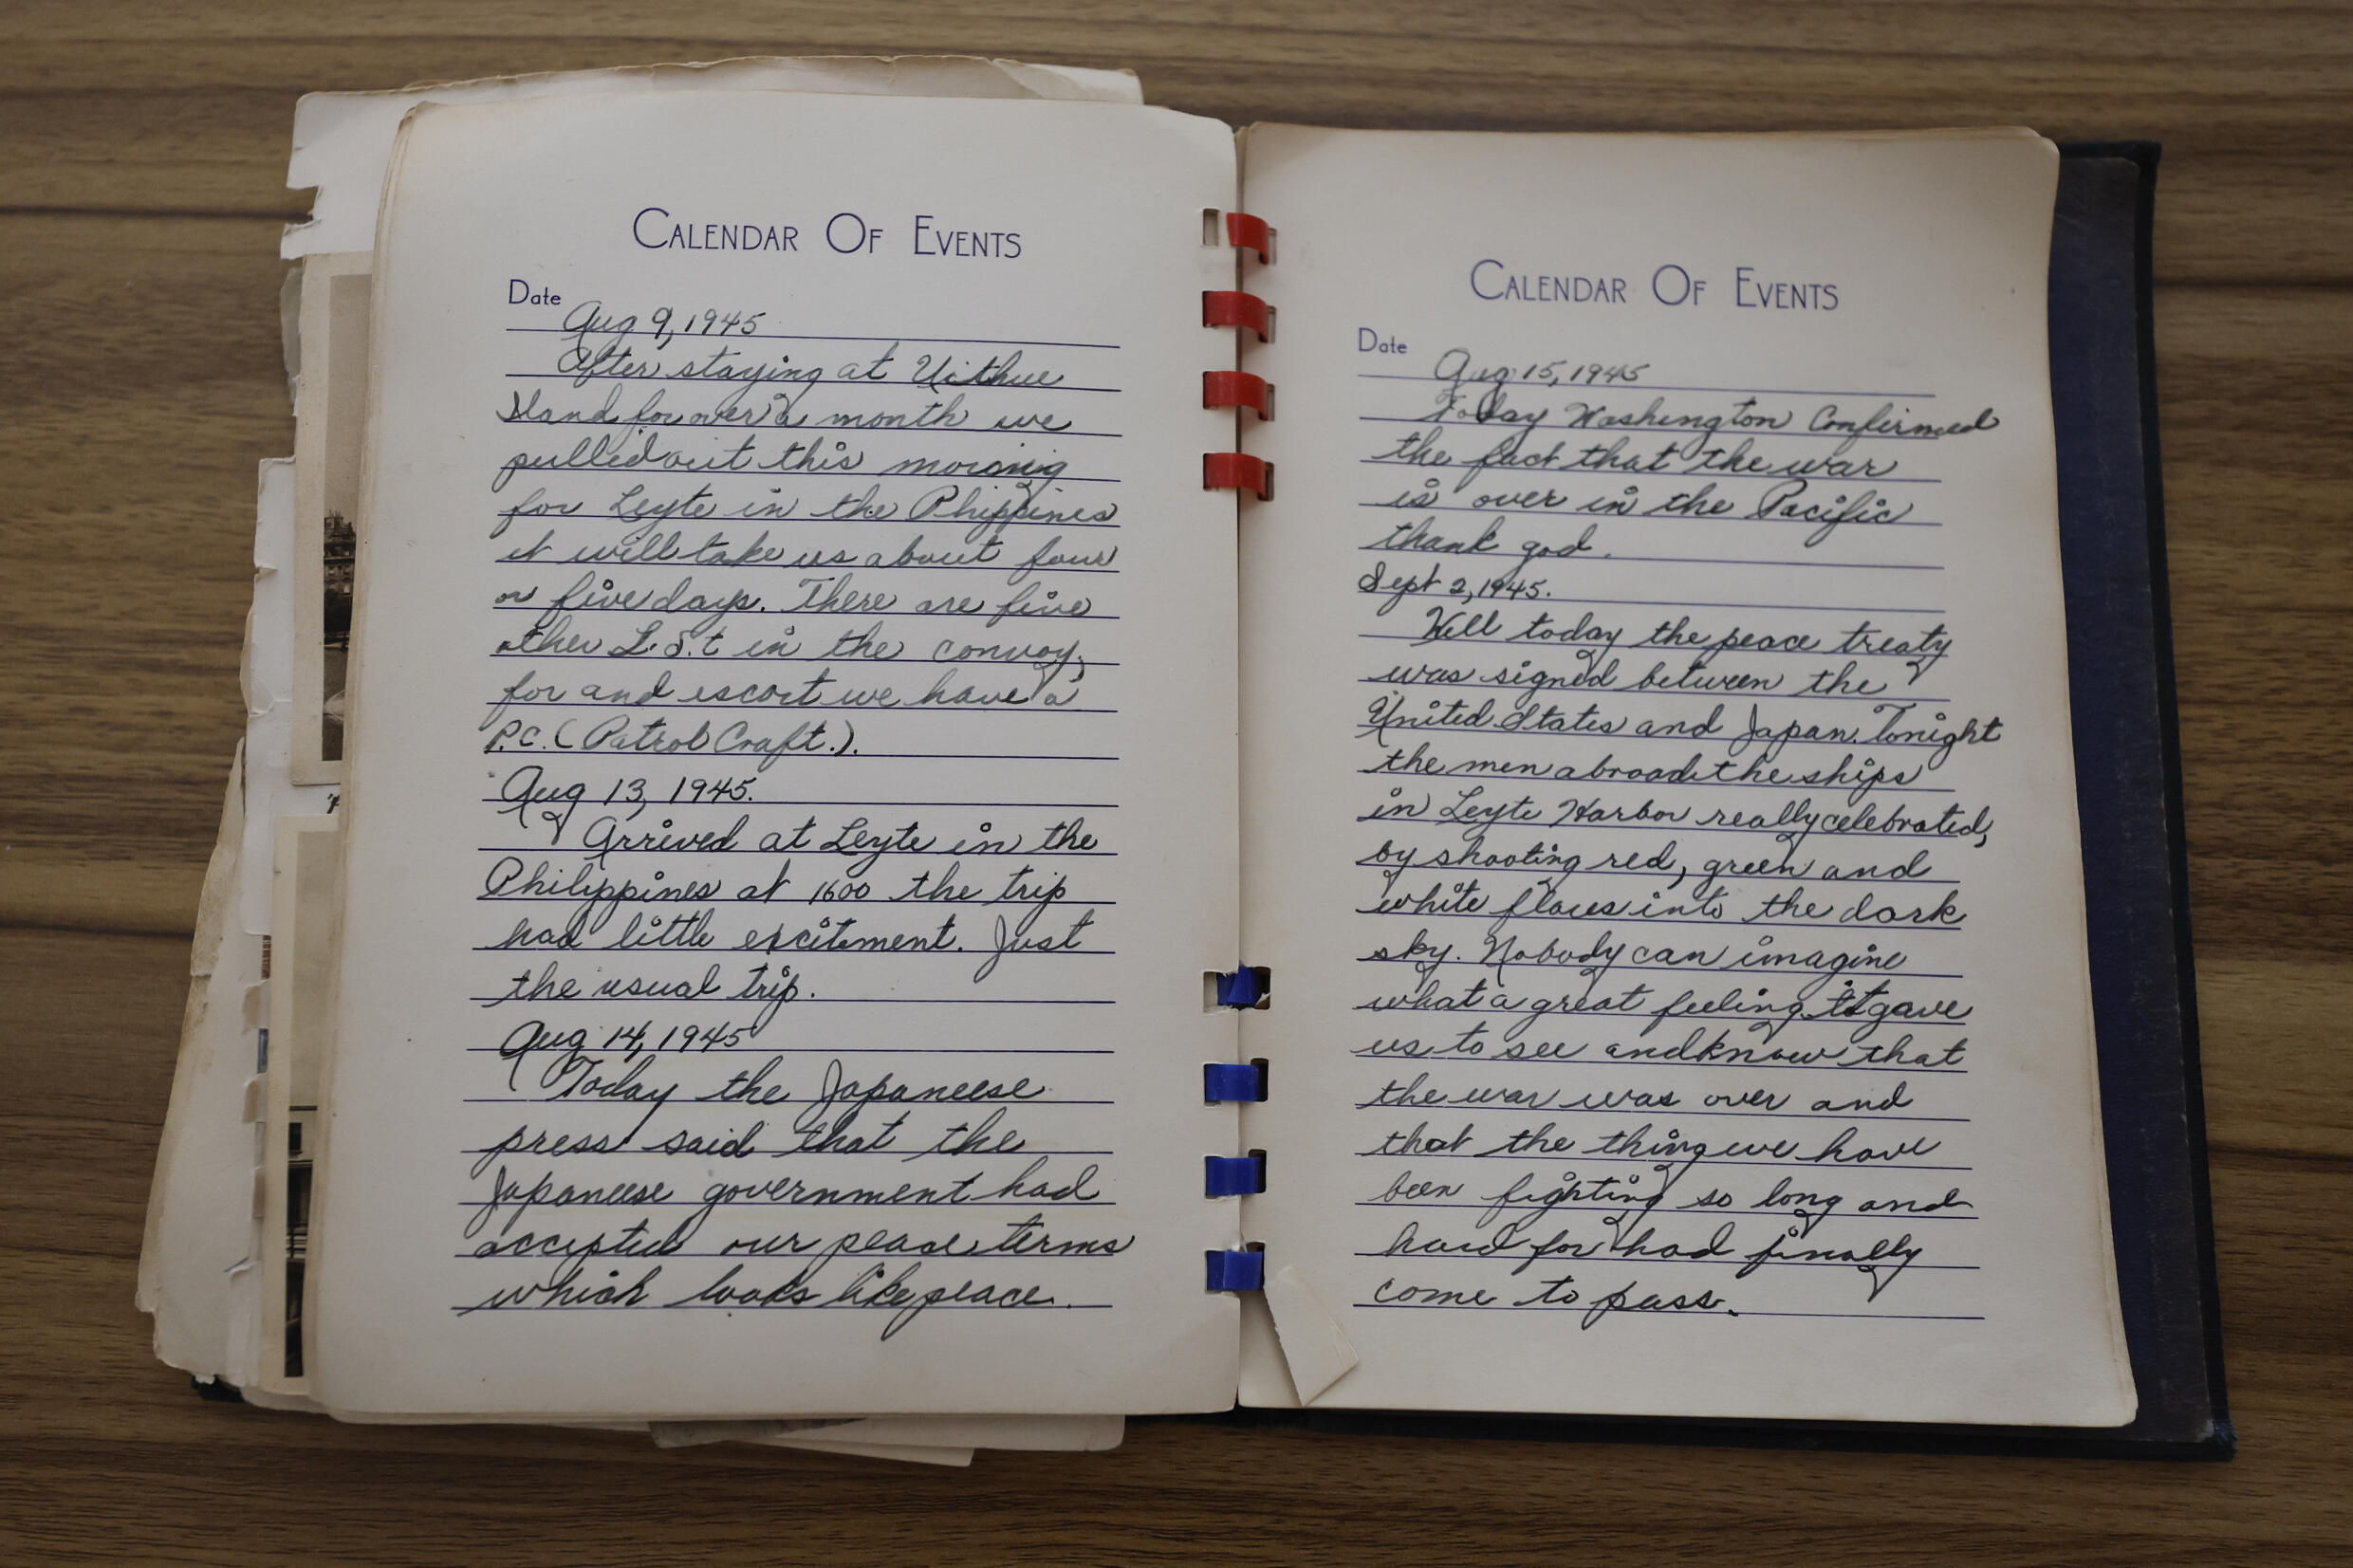 CALENDAR OF EVENTS
Date
Aug 9, 1945
After staying at Uithue
Island for over a month we
pulled out this morning
for Leyte in the Phippines
it will take us about four
or five days. There are five
other L.S.t in the convoy,
for and escort we have a
P.C. (Patrol Craft.).
Aug 13, 1945.
Arrived at Leyte in the
Philippines at 1600 the trip
had little excitement. Just
the usual trip.
Aug 14, 1945
Today the Japaneese
press said that the
Japaneese government had
accepted our peace terms
which looks like peace.
CALENDAR OF EVENTS
Date
Aug 15, 1945
Today Washington Confirmed
the fact that the war
is over in the Pacific
thank god.
Sept 2, 1945.
Well today the peace treaty
was signed between the
United States and Japan. Tonight
the men abroad the ships
in Leyte Harbor really celebrated,
by shooting red, green and
white flares into the dark
sky. Nobody can imagine
what a great feeling it gave
us to see and know that
the war was over and
that the thing we have
been fighting so long and
hard for had finally
come to pass.